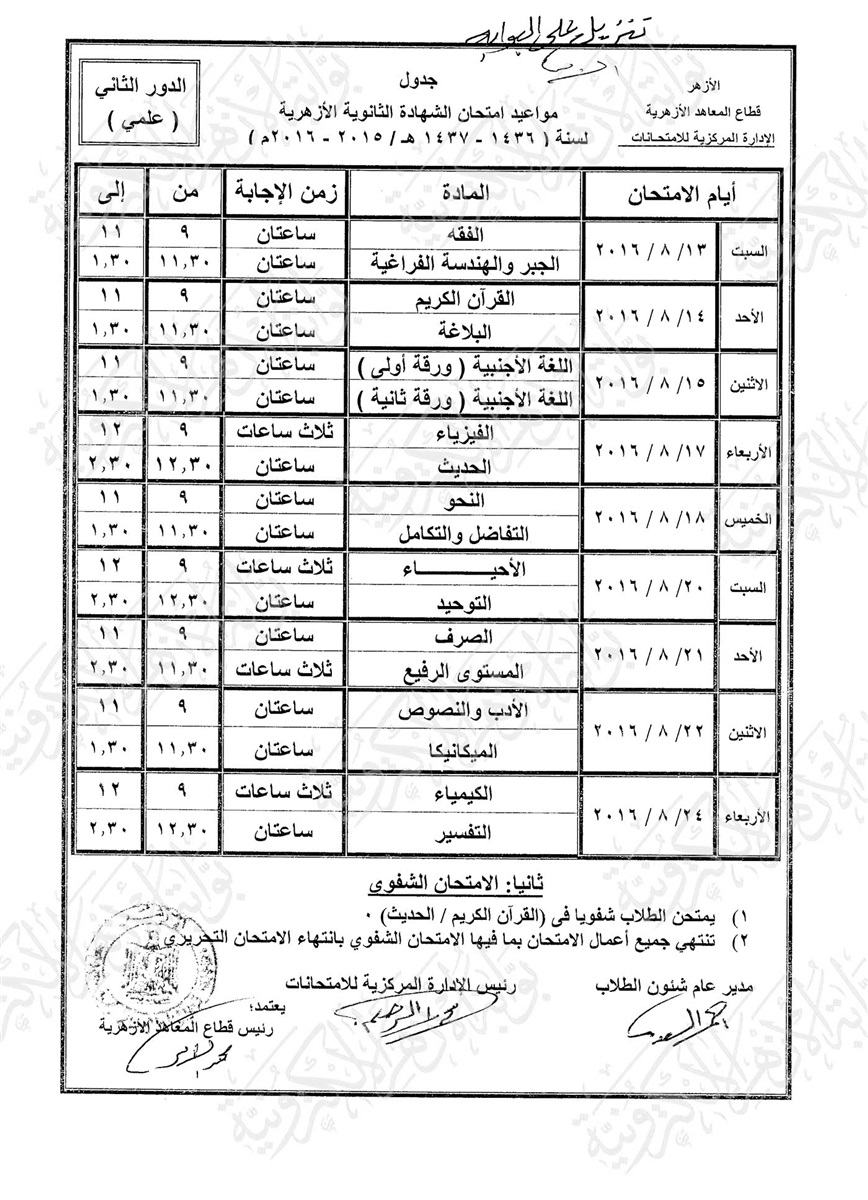 تنزيل على البوابه
الأزهر
قطاع المعاهد الأزهرية
الإدارة المركزية للامتحانات
جدول
مواعيد امتحان الشهادة الثانوية الأزهرية
لسنة ( ١٤٣٦ - ١٤٣٧ هـ / ٢٠١٥ - ٢٠١٦م )
الدور الثاني
( علمي )
أيام الامتحان المادة زمن الإجابة من إلى
السبت ١٣/ ٨ / ٢٠١٦ الفقه ساعتان ٩ ١١
الجبر والهندسة الفراغية ساعتان ١١,٣٠ ١,٣٠
الأحد ١٤/ ٨ / ٢٠١٦ القرآن الكريم ساعتان ٩ ١١
البلاغة ساعتان ١١,٣٠ ١,٣٠
الاثنين ١٥/ ٨ / ٢٠١٦ اللغة الأجنبية ( ورقة أولى ) ساعتان ٩ ١١
اللغة الأجنبية ( ورقة ثانية ) ساعتان ١١,٣٠ ١,٣٠
الأربعاء ١٧/ ٨ / ٢٠١٦ الفيزياء ثلاث ساعات ٩ ١٢
الحديث ساعتان ١٢,٣٠ ٢,٣٠
الخميس ١٨/ ٨ / ٢٠١٦ النحو ساعتان ٩ ١١
التفاضل والتكامل ساعتان ١١,٣٠ ١,٣٠
السبت ٢٠/ ٨ / ٢٠١٦ الأحيـــــــاء ثلاث ساعات ٩ ١٢
التوحيد ساعتان ١٢,٣٠ ٢,٣٠
الأحد ٢١/ ٨ / ٢٠١٦ الصرف ساعتان ٩ ١١
المستوى الرفيع ثلاث ساعات ١١,٣٠ ٢,٣٠
الاثنين ٢٢/ ٨ / ٢٠١٦ الأدب والنصوص ساعتان ٩ ١١
الميكانيكا ساعتان ١١,٣٠ ١,٣٠
الأربعاء ٢٤/ ٨ / ٢٠١٦ الكيمياء ثلاث ساعات ٩ ١٢
التفسير ساعتان ١٢,٣٠ ٢,٣٠
ثانيا: الامتحان الشفوى
١) يمتحن الطلاب شفويا فى (القرآن الكريم / الحديث) ٠
٢) تنتهي جميع أعمال الامتحان بما فيها الامتحان الشفوي بانتهاء الامتحان التحريري
مدير عام شئون الطلاب
رئيس الإدارة المركزية للامتحانات
يعتمد؛
رئيس قطاع المعاهد الأزهرية
بوابة الأزهر الإلكترونية